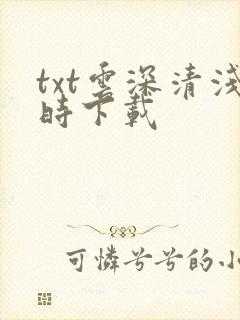 txt雲深清淺
時下載
可憐兮兮的小